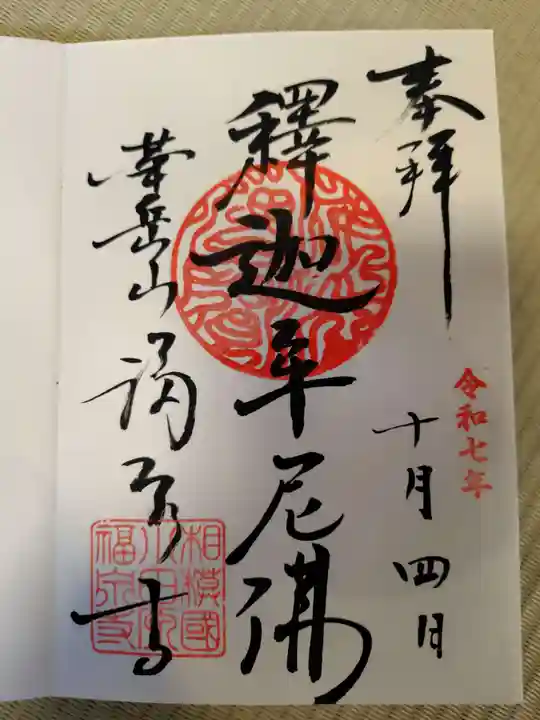 奉拝
令和七年
十月四日
釋迦牟尼佛
華岳山 福泉寺
相模國
小田原
福泉寺